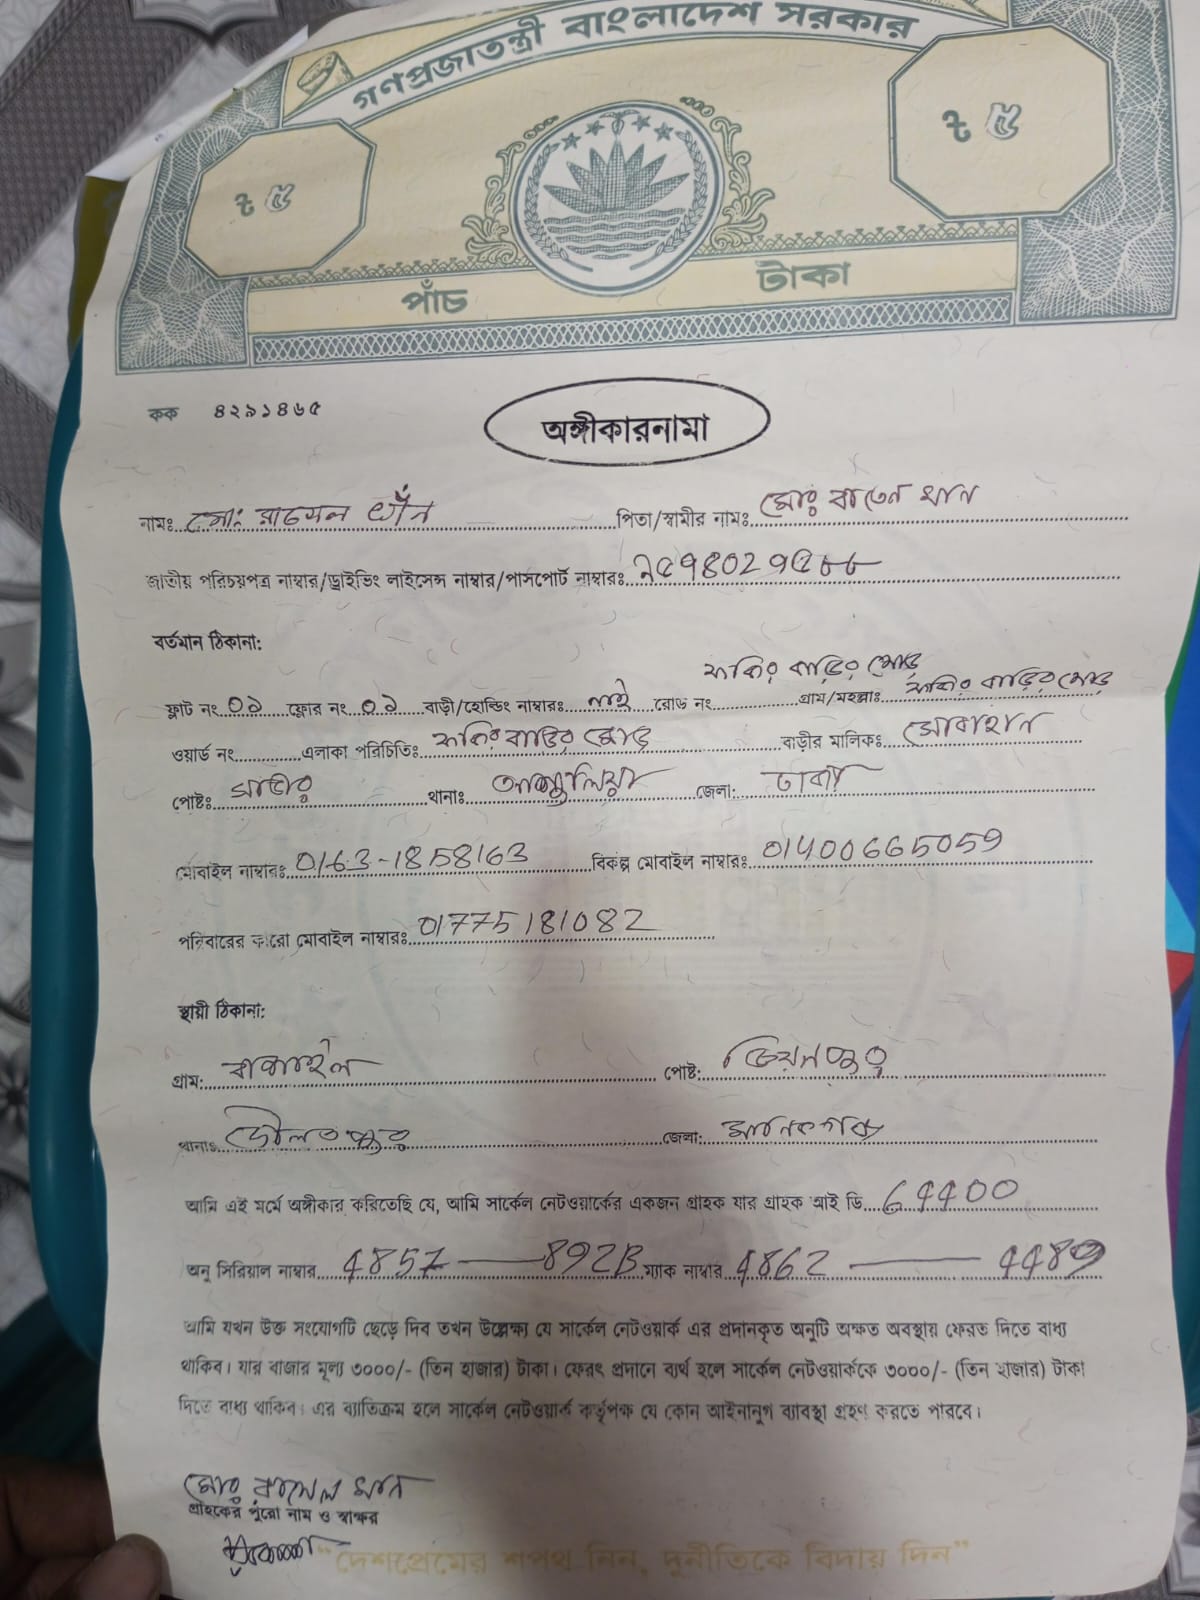 গণপ্রজাতন্ত্রী বাংলাদেশ সরকার
৳ ৫ ৳ ৫
পাঁচ টাকা
কক ৪২৯১৪৬৫
অঙ্গীকারনামা
নামঃ মোঃ রাসেল খাঁন পিতা/স্বামীর নামঃ মোঃ বাতেন খান
জাতীয় পরিচয়পত্র নাম্বার/ড্রাইভিং লাইসেন্স নাম্বার/পাসপোর্ট নাম্বারঃ
বর্তমান ঠিকানা:
ফ্লাট নং ০৯ ফ্লোর নং ০৯ বাড়ী/হোল্ডিং নাম্বারঃ নাই রোড নং ফকির বাড়ির মোড় গ্রাম/মহল্লাঃ ফকির বাড়ির মোড়
ওয়ার্ড নং এলাকা পরিচিতিঃ ফকির বাড়ির মোড় বাড়ীর মালিকঃ সোবাহান
পোষ্টঃ সাভার থানাঃ আশুলিয়া জেলা: ঢাকা
মোবাইল নাম্বারঃ 0163-1858163 বিকল্প মোবাইল নাম্বারঃ 01400665059
পরিবারের কারো মোবাইল নাম্বারঃ 01775181082
স্থায়ী ঠিকানা:
গ্রাম: পোষ্ট:
থানাঃ দৌলতপুর জেলা: মানিকগঞ্জ
আমি এই মর্মে অঙ্গীকার করিতেছি যে, আমি সার্কেল নেটওয়ার্কের একজন গ্রাহক যার গ্রাহক আই ডি 64400
অনু সিরিয়াল নাম্বার 4857 — 892B ম্যাক নাম্বার 4862 — 4489
আমি যখন উক্ত সংযোগটি ছেড়ে দিব তখন উল্লেক্ষ্য যে সার্কেল নেটওয়ার্ক এর প্রদানকৃত অনুটি অক্ষত অবস্থায় ফেরত দিতে বাধ্য
থাকিব। যার বাজার মূল্য ৩০০০/- (তিন হাজার) টাকা। ফেরৎ প্রদানে ব্যর্থ হলে সার্কেল নেটওয়ার্ককে ৩০০০/- (তিন হাজার) টাকা
দিতে বাধ্য থাকিব। এর ব্যাতিক্রম হলে সার্কেল নেটওয়ার্ক কর্তৃপক্ষ যে কোন আইনানুগ ব্যাবস্থা গ্রহণ করতে পারবে।
মোঃ রাসেল খান
গ্রাহকের পুরো নাম ও স্বাক্ষর
"দেশপ্রেমের শপথ নিন, দুর্নীতিকে বিদায় দিন"